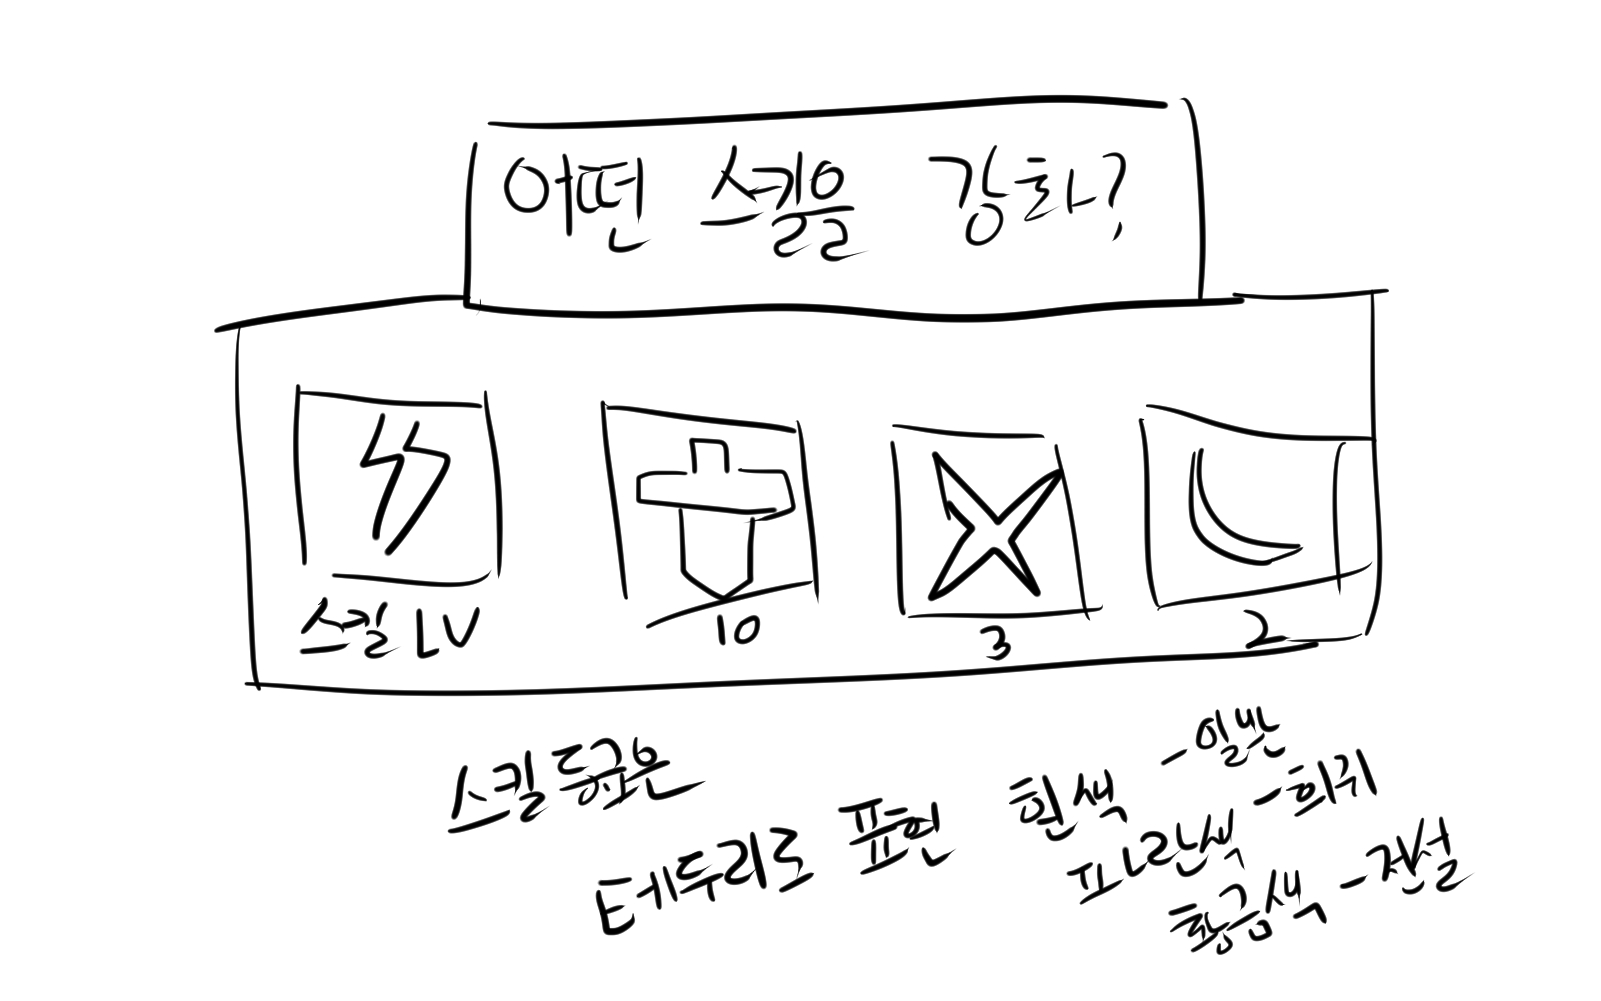 어떤 스킬을 강화?
스킬 LV
10
3
2
스킬 등급은
테두리로 표현
흰색 - 일반
파란색 - 희귀
황금색 - 전설